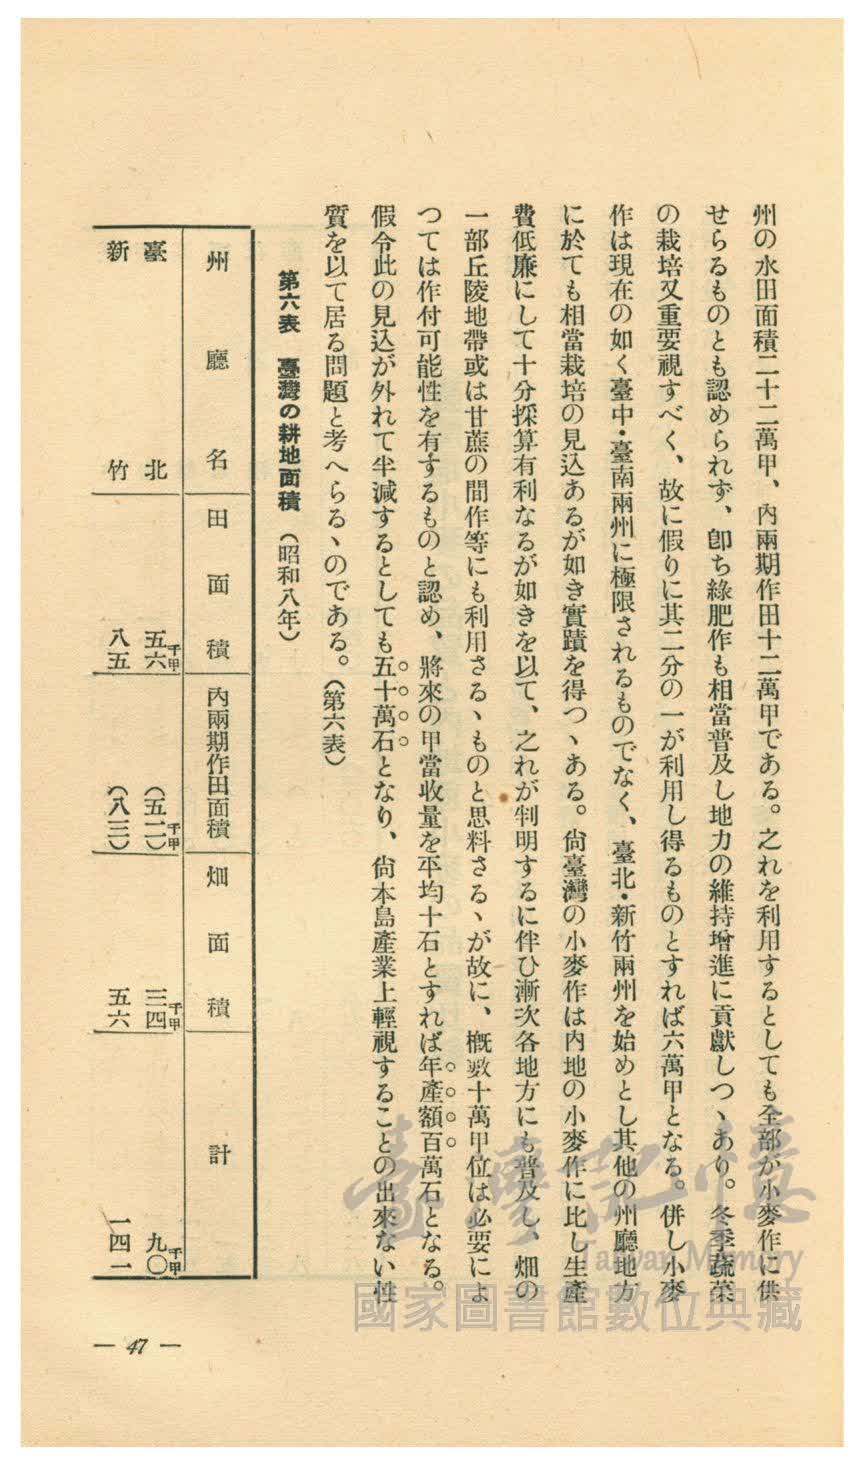 州の水田面積二十二萬甲、內兩期作田十二萬甲である。之れを利用するとしても全部が小麥作に供
せらるものとも認められず、卽ち綠肥作も相當普及し地力の維持增進に貢獻しつヽあり。冬季蔬菜
の栽培又重要視すべく、故に假りに其二分の一が利用し得るものとすれば六萬甲となる。併し小麥
作は現在の如く臺中・臺南兩州に極限されるものでなく、臺北・新竹兩州を始めとし其他の州廳地方
に於ても相當栽培の見込あるが如き實蹟を得つヽある。尙臺灣の小麥作は內地の小麥作に比し生產
費低廉にして十分採算有利なるが如きを以て、之れが判明するに伴ひ漸次各地方にも普及し、畑の
一部丘陵地帶或は甘蔗の間作等にも利用さるヽものと思料さるヽが故に、槪數十萬甲位は必要によ
つては作付可能性を有するものと認め、將來の甲當收量を平均十石とすれば年產額百萬石となる。
假令此の見込が外れて半減するとしても五十萬石となり、尙本島產業上輕視することの出來ない性
質を以て居る問題と考へらるヽのである。(第六表)
第六表 臺灣の耕地面積 (昭和八年)
州廳名 田面積 內兩期作田面積 畑面積 計
臺北 五六千甲 (五二)千甲 三四千甲 九〇千甲
新竹 八五 (八三) 五六 一四一
— 47 —
臺灣記憶
Taiwan Memory
國家圖書館數位典藏